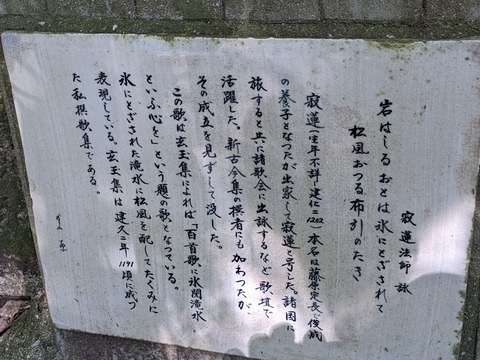 寂蓮法師 詠
岩はしるおとは氷にとざされて
松風おつる布引のたき
寂蓮(生年不詳-建仁二1202)本名は藤原定長。俊成
の養子となつたが出家して寂蓮と号した。諸国に
旅すると共に諸歌会に出詠するなど歌壇で
活躍した。新古今集の撰者にも加わつたが、
その成立を見ずして没した。
この歌は玄玉集によれば「百首歌に氷閉滝水
といふ心を」という題の歌となつている。
氷にとざされた滝水に松風を配してたくみに
表現している。玄玉集は建久二年1191頃に成つ
た私撰歌集である。